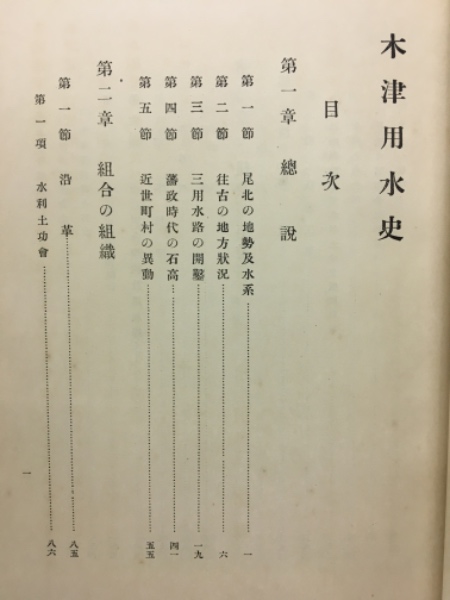 木津用水史
目次
第一章 總說
第一節 尾北の地勢及水系 一
第二節 往古の地方狀況 六
第三節 三用水路の開鑿 一九
第四節 藩政時代の石高 四一
第五節 近世町村の異動 五五
第二章 組合の組織
第一節 沿革 八五
第一項 水利土功會 八六
一